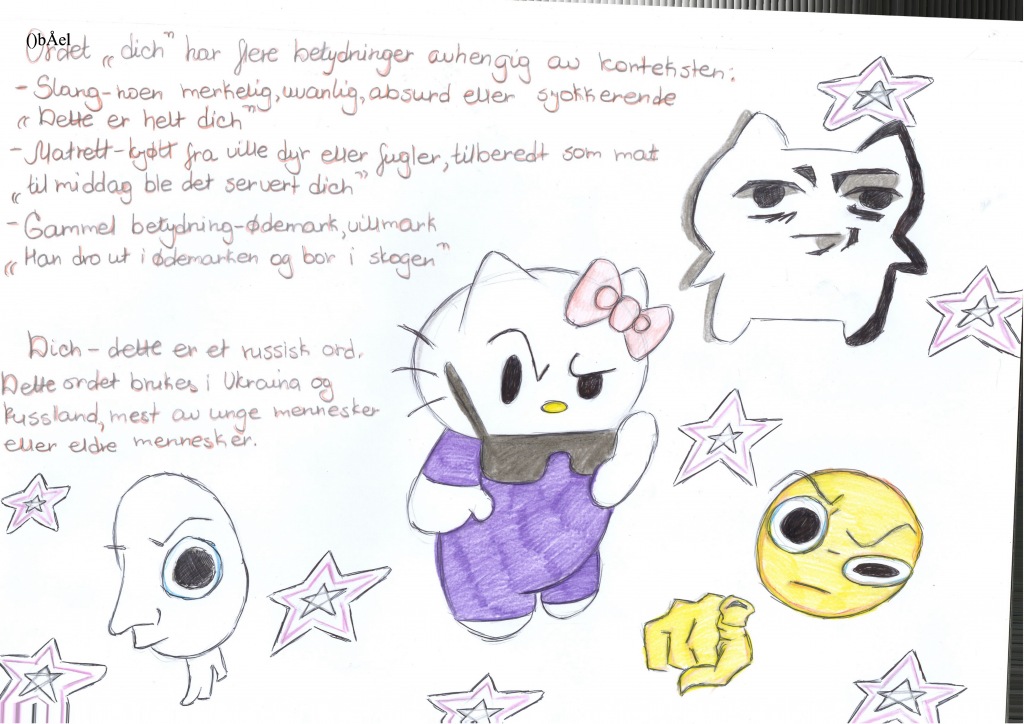 ()bÅel
Ordet „dich” har flere betydninger avhengig av konteksten:
- Slang-noen merkelig, uvanlig, absurd eller sjokkerende
„Dette er helt dich”
- Matrett-kjøtt fra ville dyr eller fugler, tilberedt som mat
„til middag ble det servert dich”
- Gammel betydning-ødemark, villmark
„Han dro ut i ødemarken og bor i skogen”
Dich – dette er et russisk ord.
Dette ordet brukes i Ukraina og
Russland, mest av unge mennesker
eller eldre mennesker.